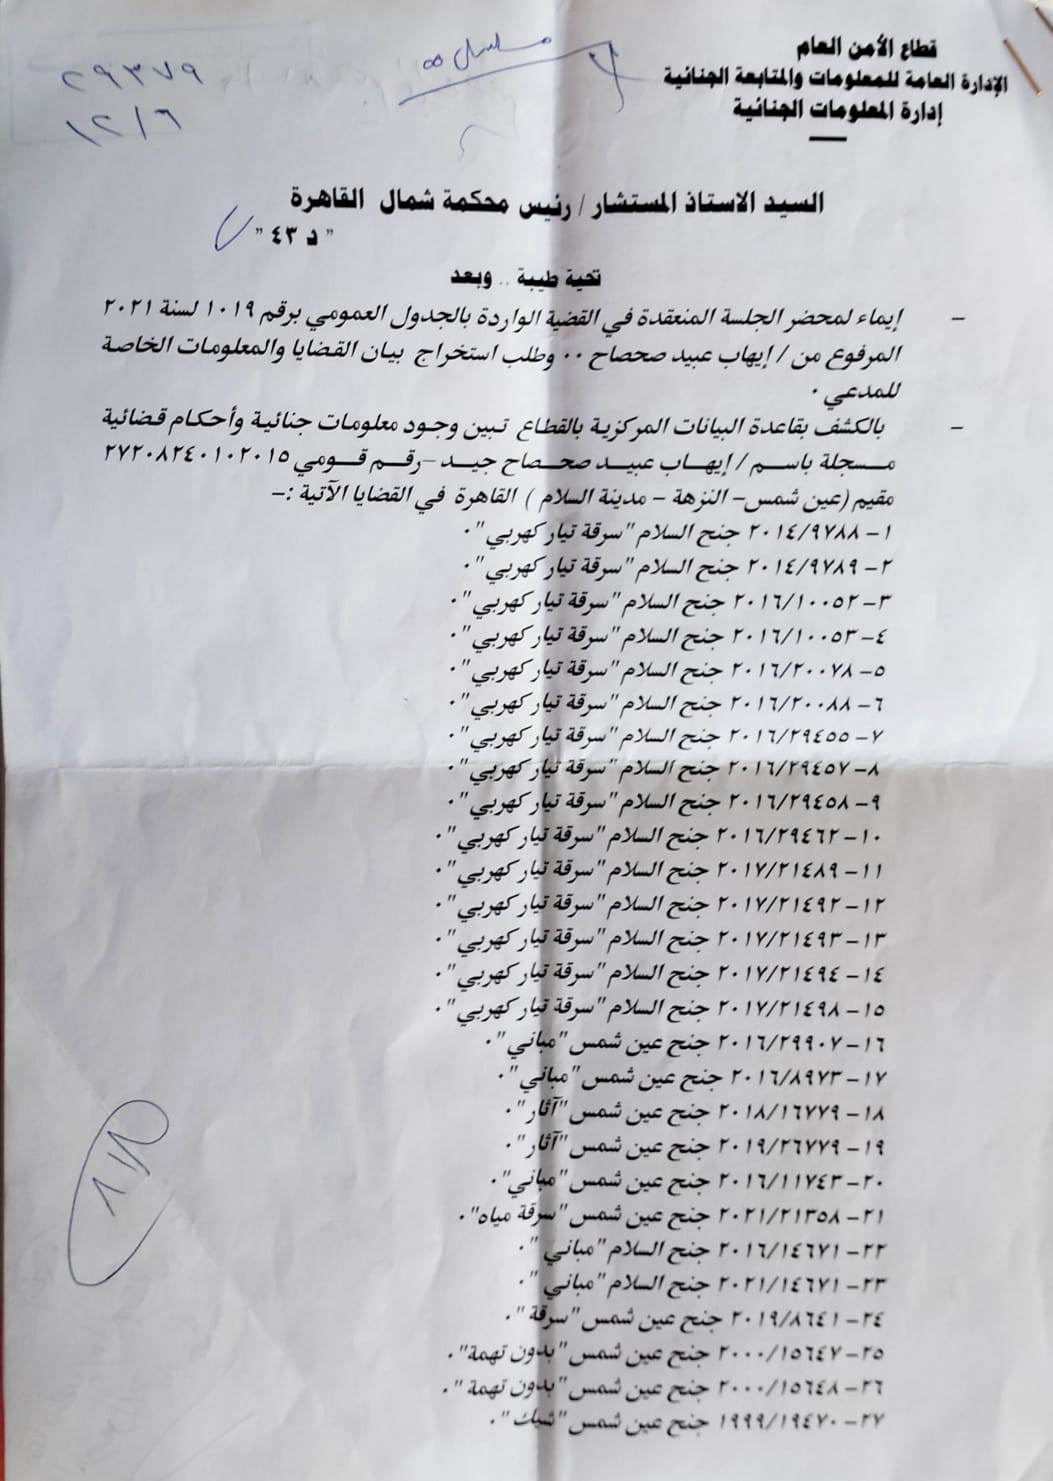 قطاع الأمن العام
الإدارة العامة للمعلومات والمتابعة الجنائية
إدارة المعلومات الجنائية
مسلسل ٥٥
٢٩٣٧٩
١٢/٦
السيد الاستاذ المستشار / رئيس محكمة شمال القاهرة
" د ٤٣ "
تحية طيبة .. وبعد
– إيماء لمحضر الجلسة المنعقدة في القضية الواردة بالجدول العمومي برقم ١٠١٩ لسنة ٢٠٢١
المرفوع من / إيهاب عبيد صحصاح ٠٠ وطلب استخراج بيان القضايا والمعلومات الخاصة
للمدعي ٠
– بالكشف بقاعدة البيانات المركزية بالقطاع تبين وجود معلومات جنائية وأحكام قضائية
مسجلة باسم / إيهاب عبيد صحصاح جيد – رقم قومي ٢٧٢٠٨٢٤٠١٠٢٠١٥
مقيم (عين شمس – النزهة – مدينة السلام ) القاهرة في القضايا الآتية :–
١– ٢٠١٤/٩٧٨٨ جنح السلام "سرقة تيار كهربي"٠
٢– ٢٠١٤/٩٧٨٩ جنح السلام "سرقة تيار كهربي"٠
٣– ٢٠١٦/١٠٠٥٢ جنح السلام "سرقة تيار كهربي"٠
٤– ٢٠١٦/١٠٠٥٣ جنح السلام "سرقة تيار كهربي"٠
٥– ٢٠١٦/٢٠٠٧٨ جنح السلام "سرقة تيار كهربي"٠
٦– ٢٠١٦/٢٠٠٨٨ جنح السلام "سرقة تيار كهربي"٠
٧– ٢٠١٦/٢٩٤٥٥ جنح السلام "سرقة تيار كهربي"٠
٨– ٢٠١٦/٢٩٤٥٧ جنح السلام "سرقة تيار كهربي"٠
٩– ٢٠١٦/٢٩٤٥٨ جنح السلام "سرقة تيار كهربي"٠
١٠– ٢٠١٦/٢٩٤٦٢ جنح السلام "سرقة تيار كهربي"٠
١١– ٢٠١٧/٢١٤٨٩ جنح السلام "سرقة تيار كهربي"٠
١٢– ٢٠١٧/٢١٤٩٢ جنح السلام "سرقة تيار كهربي"٠
١٣– ٢٠١٧/٢١٤٩٣ جنح السلام "سرقة تيار كهربي"٠
١٤– ٢٠١٧/٢١٤٩٤ جنح السلام "سرقة تيار كهربي"٠
١٥– ٢٠١٧/٢١٤٩٨ جنح السلام "سرقة تيار كهربي"٠
١٦– ٢٠١٦/٢٩٩٠٧ جنح عين شمس "مباني"٠
١٧– ٢٠١٦/٨٩٧٣ جنح عين شمس "مباني"٠
١٨– ٢٠١٨/١٦٧٧٩ جنح عين شمس "آثار"٠
١٩– ٢٠١٩/٢٦٧٧٩ جنح عين شمس "آثار"٠
٢٠– ٢٠١٦/١١٧٤٣ جنح عين شمس "مباني"٠
٢١– ٢٠٢١/٢١٣٥٨ جنح عين شمس "سرقة مياه"٠
٢٢– ٢٠١٦/١٤٦٧١ جنح السلام "مباني "٠
٢٣– ٢٠٢١/١٤٦٧١ جنح السلام "مباني "٠
٢٤– ٢٠١٩/٨٦٤١ جنح عين شمس "سرقة "٠
٢٥– ٢٠٠٠/١٥٦٤٧ جنح عين شمس "بدون تهمة"٠
٢٦– ٢٠٠٠/١٥٦٤٨ جنح عين شمس "بدون تهمة "٠
٢٧– ١٩٩٩/١٩٤٧٠ جنح عين شمس "شيك "٠